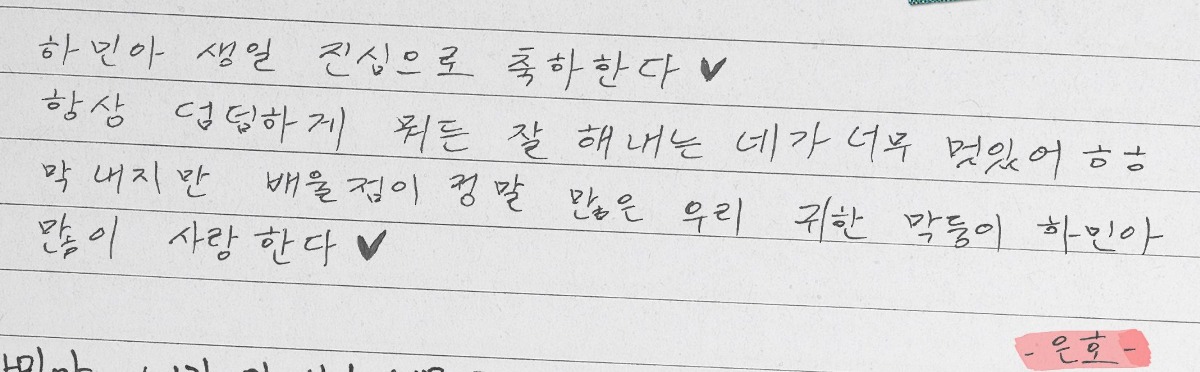 하민아 생일 진심으로 축하한다 ♥
항상 덤덤하게 뭐든 잘 해내는 네가 너무 멋있어 ㅎㅎ
막내지만 배울점이 정말 많은 우리 귀한 막둥이 하민아
많이 사랑한다 ♥
- 은호 -